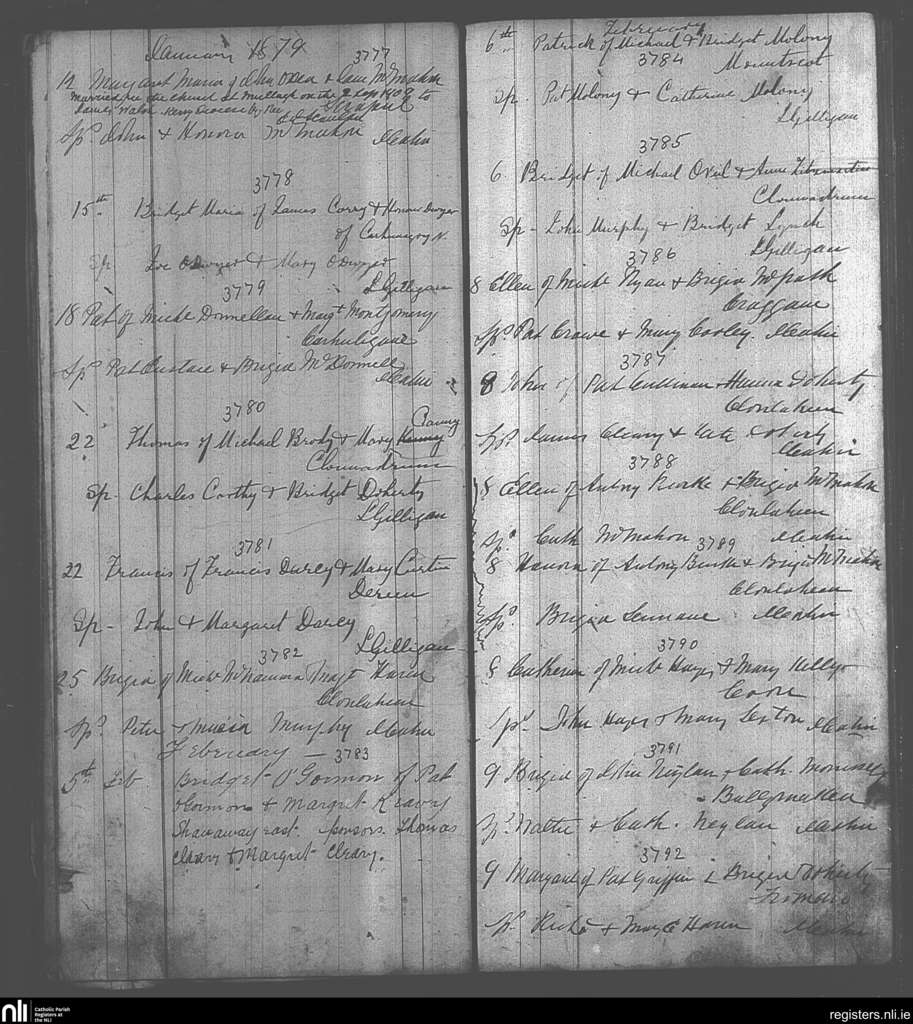 January 1879
3777
12 Margaret Maria of John Odea & Jane McMahon
married in the church at Mullagh on the 2 Sep 1908 to
James by Rev.
Sps John & Honora McMahon Meehan
3778
15th Bridget Maria of James Corry & Honor Dwyer
of N.
Sp Joe ODwyer & Mary ODwyer
LGilligan
3779
18 Pat of Michl Donnellan & Margt Montgomery
Sps Pat Eustace & Brigid McDonnell
Meehan
3780
Canny
22 Thomas of Michael Brody & Mary
Clounadrum
Sp. Charles Carthy & Bridget Doherty
LGilligan
3781
22 Francis of Francis Darcy & Mary Curtin
Dereen
Sp - John & Margaret Darcy
LGilligan
3782
25 Brigid of Michl McNamara & Margt Haren
Clonlaheen
Sps Peter & Murphy Meehan
February — 3783
5th Feb Bridget O'Gormon of Pat
oGormon & Margret Keavey
Shanaway east. Sponsors. Thomas
Cleary & Margret Cleary.
February
6th Patrick of Michael & Bridget Molony
3784 Mountscot
Sp. Pat Molony & Catherine Molony
LGilligan
3785
6 Bridget of Michael ONeil & Anne
Clounadrum
Sp - John Murphy & Bridget Lynch
3786 LGilligan
8 Ellen of Michl Ryan & Brigid McGrath
Craggane
Sps Pat Crowe & Mary Cooley. Meehan
3787
8 John of Pat Cullinan & Hanna Doherty
Clonlaheen
Sps James Cleary & Kate Doherty
Meehan
3788
8 Ellen of Antony Burke & Brigid McMahon
Clonlaheen
Sp. Cath McMahon Meehan
3789
8 Hanora of Antony Burke & Brigid McMahon
Clonlaheen
Sps Brigid Lennane Meehan
3790
8 Catherine of Michl Hayes & Mary Kelly
Coore
Sps John Hayes & Mary Sexton Meehan
3791
9 Brigid of John Neylan & Cath. Morrissey
Ballymackea
Sps Mattw & Cath. Neylan Meehan
3792
9 Margaret of Pat Griffin & Brigid Doherty
Fromore
Sp. Richd & Mary Haren Meehan
nli
Catholic Parish
Registers at
the NLI
registers.nli.ie